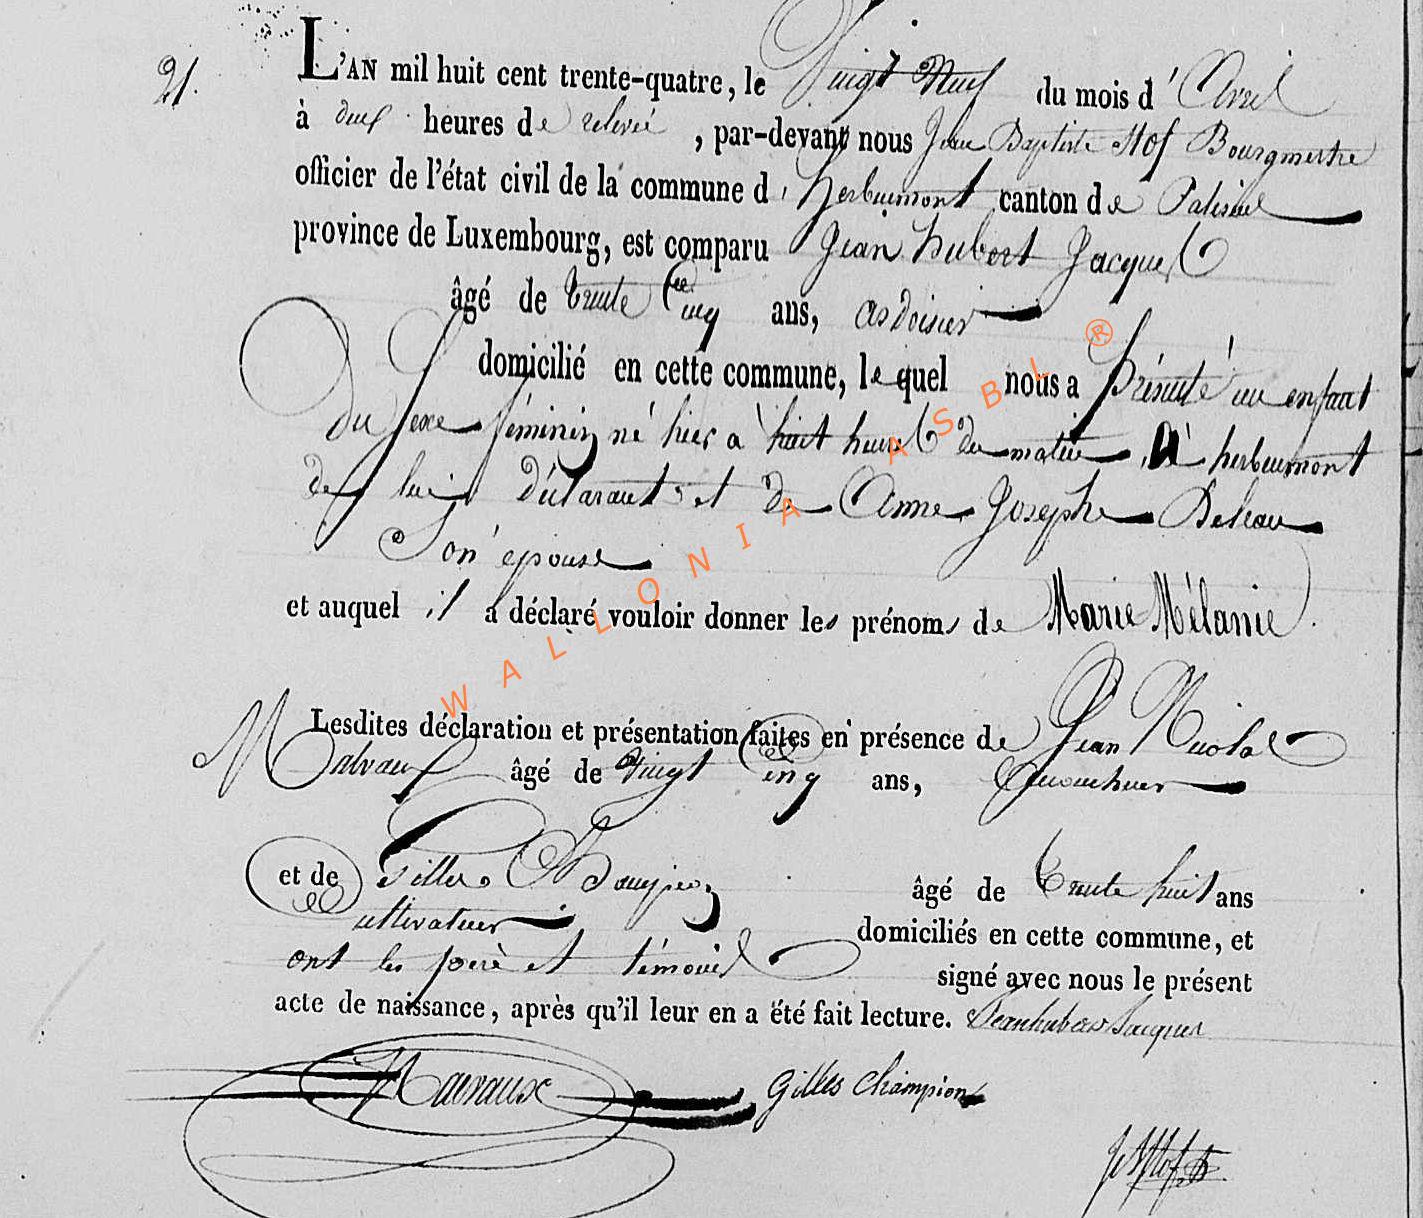 21.
L'AN mil huit cent trente-quatre, le Vingt Neuf du mois d' Avril
à deux heures de relevée, par-devant nous Jean Baptiste Hof Bourgmestre
officier de l'état civil de la commune d'herbeumont canton de Paliseul
province de Luxembourg, est comparu Jean hubert Jacques
âgé de trente Cinq ans, ardoisier
domicilié en cette commune, lequel nous a présenté un enfant
du sexe féminin né hier a huit heures du matin, à herbeumont
de lui déclarant et de Anne Josephe
Son épouse
et auquel il a déclaré vouloir donner les prénoms de Marie Mélanie.
Lesdites déclaration et présentation faites en présence de Jean Nicolas
Malvaux âgé de vingt Cinq ans,
et de Gilles Champion âgé de Trente huit ans
Cultivateur domiciliés en cette commune, et
ont les père et témoins signé avec nous le présent
acte de naissance, après qu'il leur en a été fait lecture. Jean hubert Jacques
Malvaux Gilles Champion
WALLONIA ASBL ®